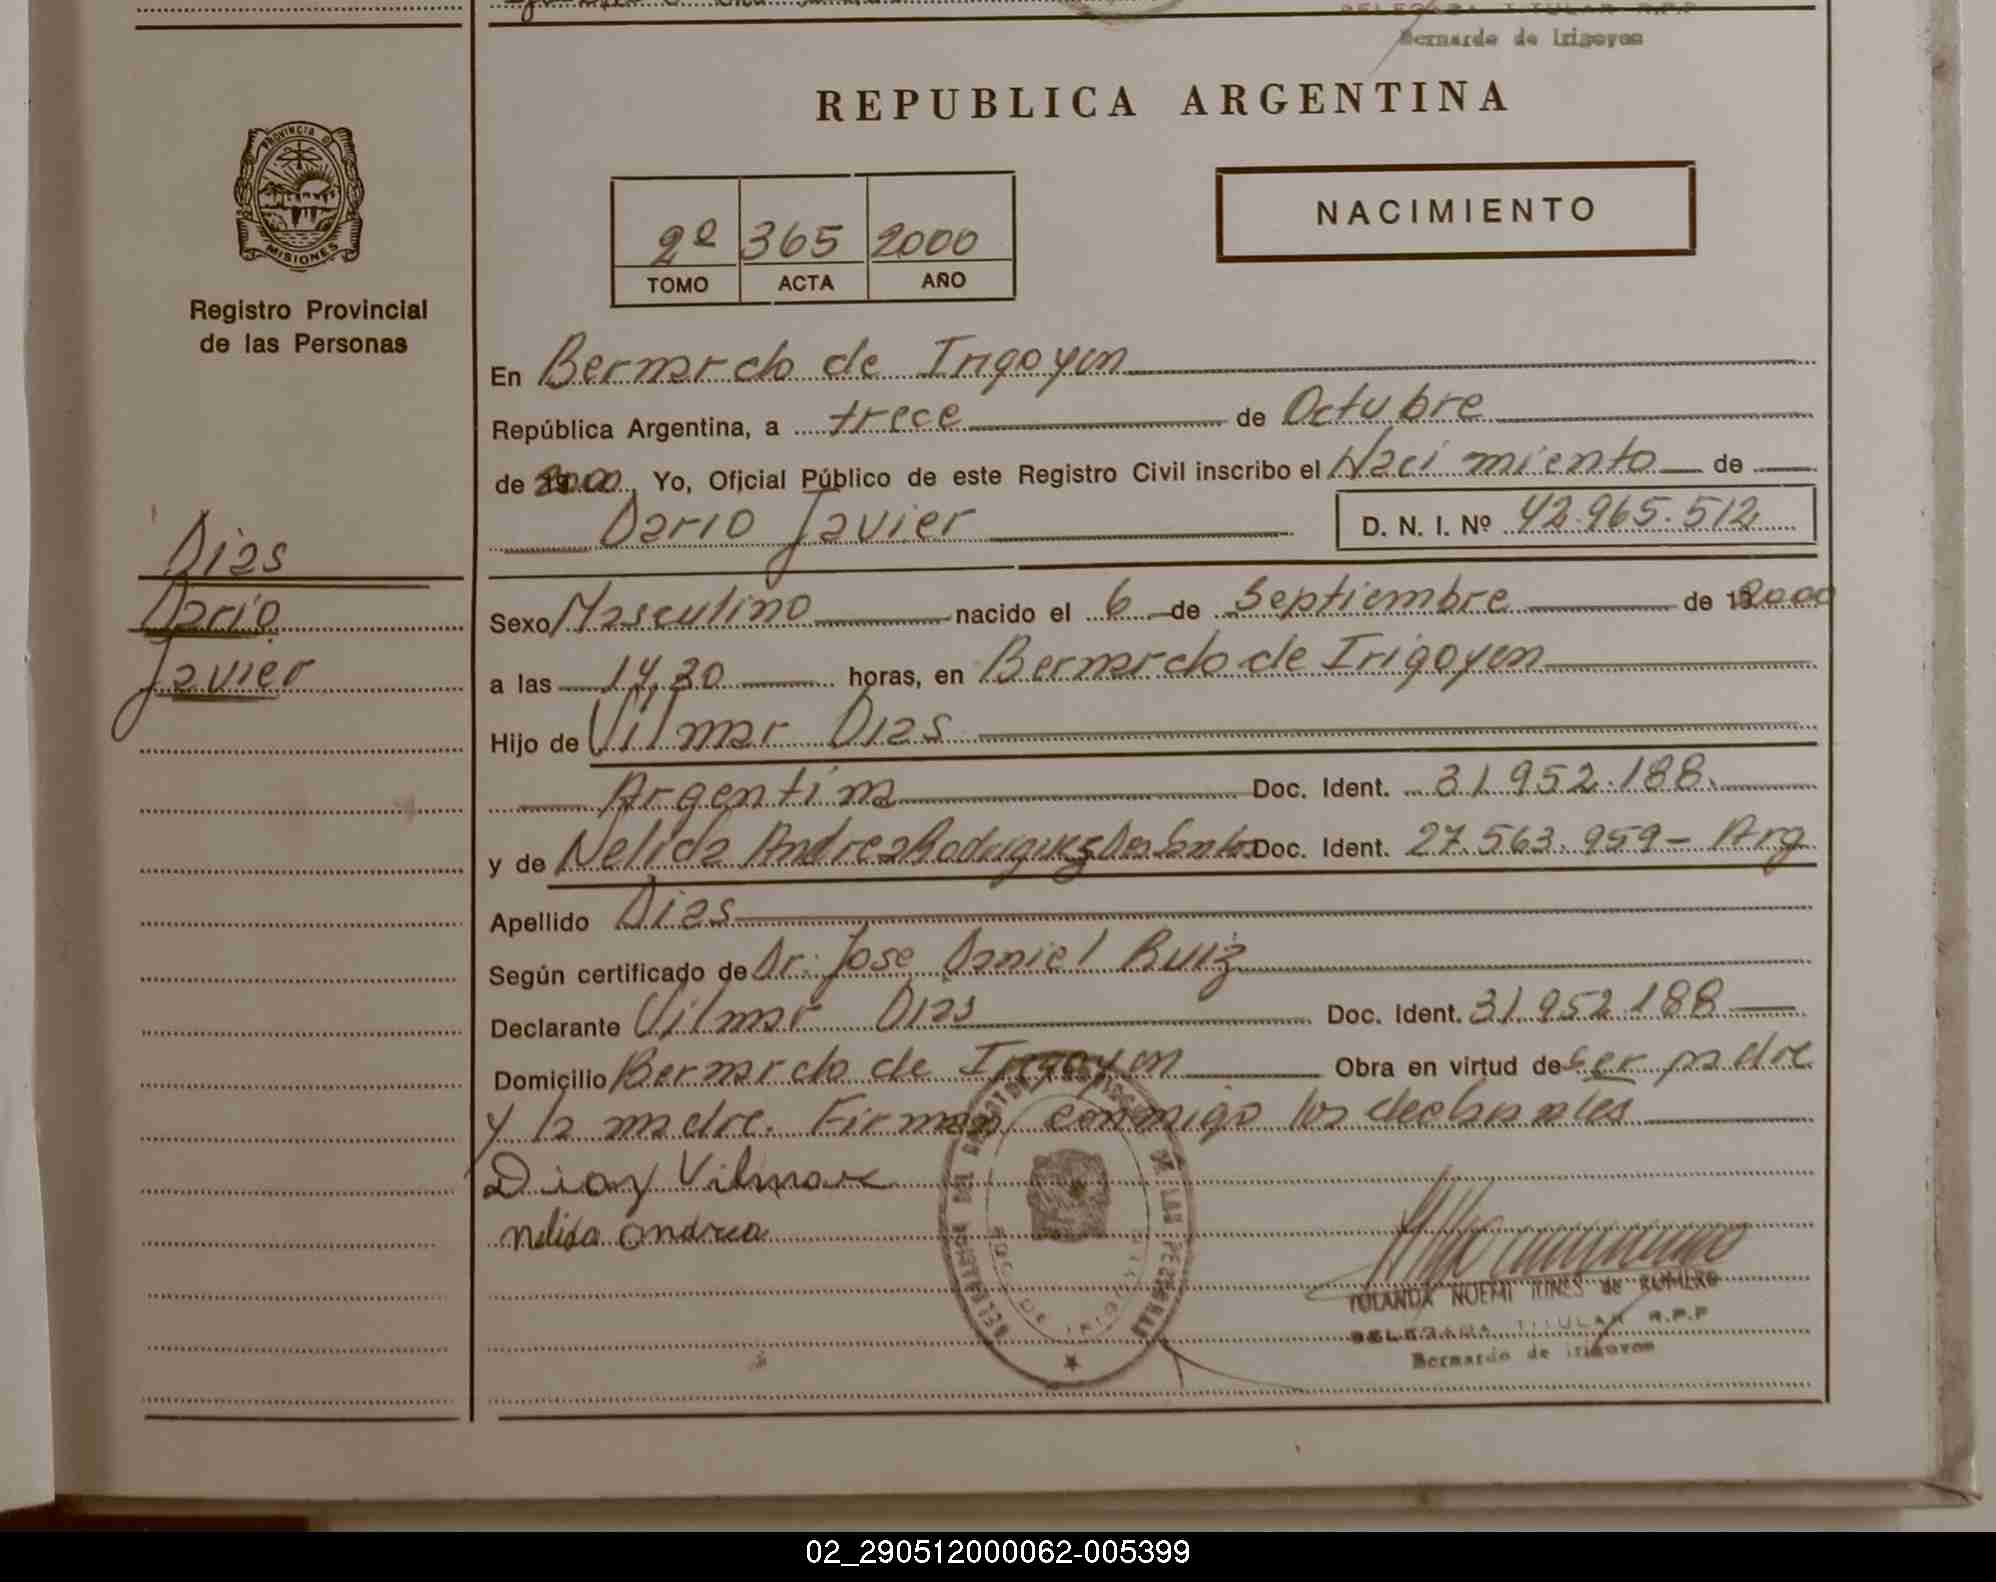 Bernardo de Irigoyen
REPUBLICA ARGENTINA
PROVINCIA DE
MISIONES
Registro Provincial
de las Personas
2º 365 2000
TOMO ACTA AÑO
NACIMIENTO
En Bernardo de Irigoyen
República Argentina, a trece de Octubre
de 2000. Yo, Oficial Público de este Registro Civil inscribo el Nacimiento de
Dario Javier D. N. I. Nº 42.965.512
Dias
Dario
Javier
Sexo Masculino nacido el 6 de Septiembre de 2000
a las 14,30 horas, en Bernardo de Irigoyen
Hijo de Vilmar Dias
Argentina Doc. Ident. 31.952.188.
y de Nelida Andrea Rodriguez Dos Santos Doc. Ident. 27.563.959 - Arg
Apellido Dias
Según certificado de Dr. Jose Daniel Ruiz
Declarante Vilmar Dias Doc. Ident. 31.952.188
Domicilio Bernardo de Irigoyen Obra en virtud de ser padre
y la madre. Firman conmigo los declarantes
Diaz Vilmar
Nelida Andrea
YOLANDA NOEMI de ROMERO
DELEGADA TITULAR R.P.P
Bernardo de Irigoyen
02_290512000062-005399